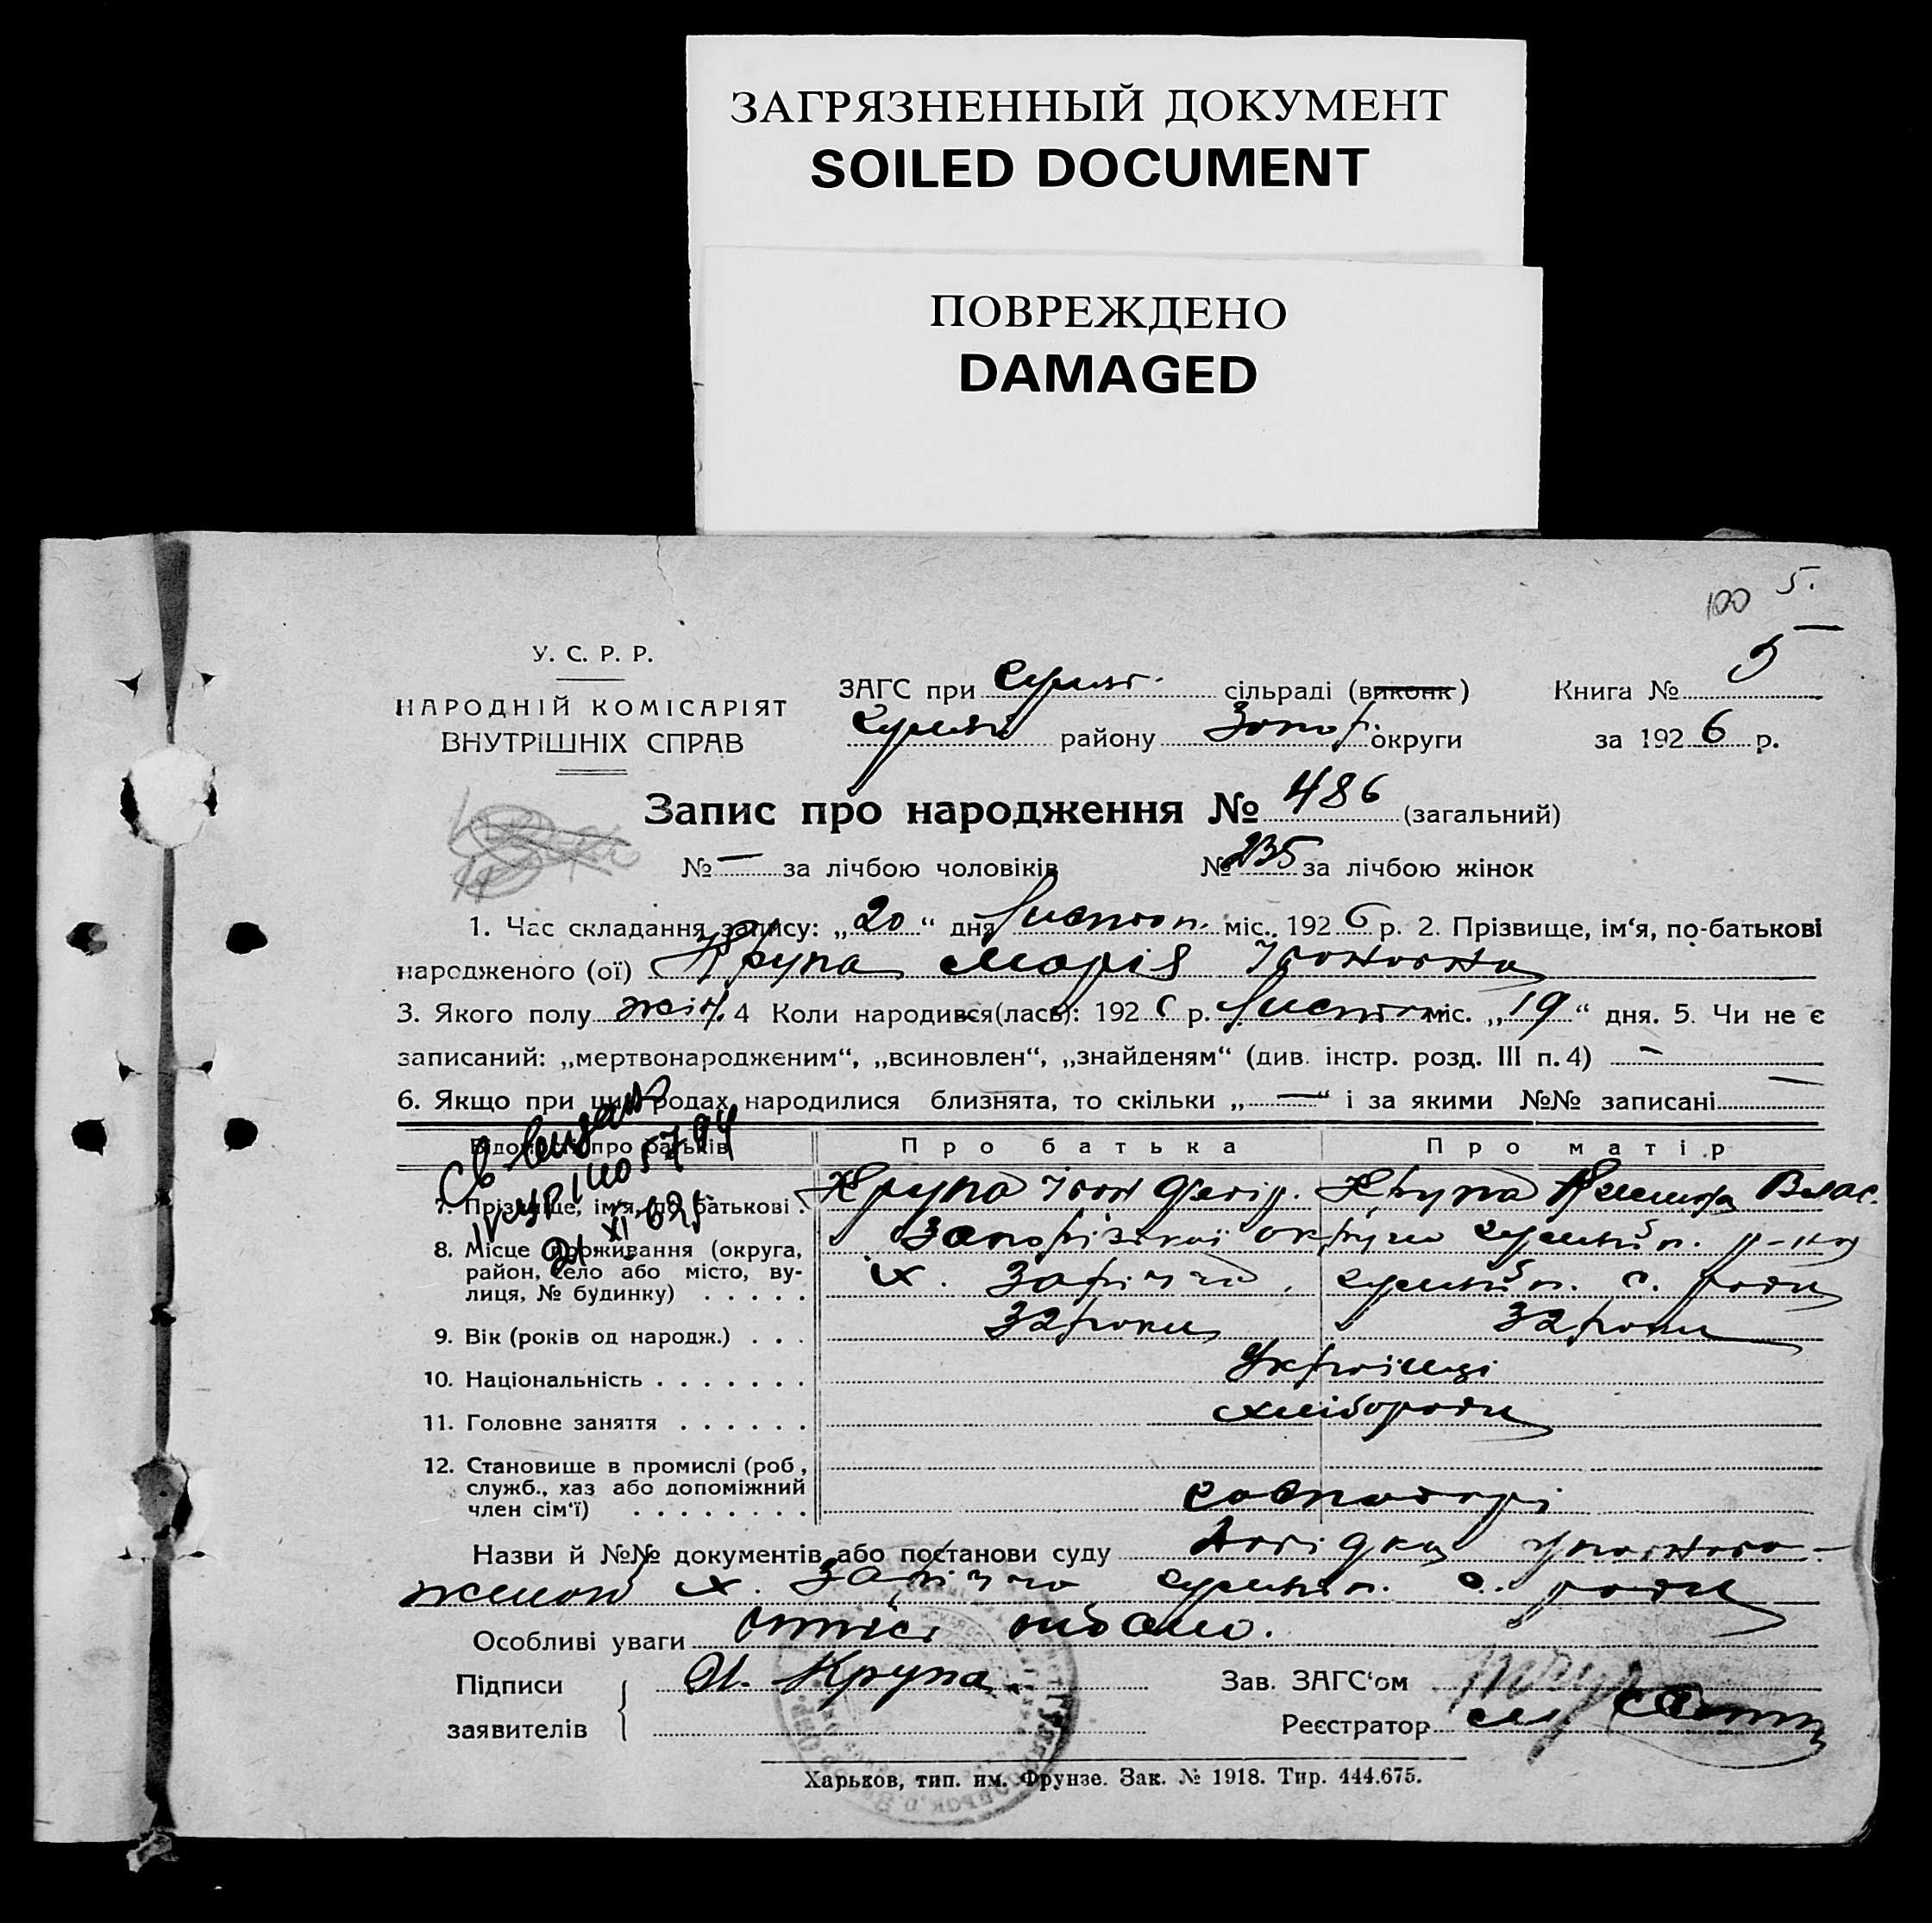 ЗАГРЯЗНЕННЫЙ ДОКУМЕНТ
SOILED DOCUMENT
ПОВРЕЖДЕНО
DAMAGED
100 5.
У. С. Р. Р.
НАРОДНІЙ КОМІСАРІЯТ
ВНУТРІШНІХ СПРАВ
ЗАГС при сільраді (виконк)
району Запор. округи
Книга № 5
за 1926 р.
Запис про народження № 486 (загальний)
№ — за лічбою чоловіків № 235 за лічбою жінок
1. Час складання запису: „20“ дня Листоп. міс. 1926 р. 2. Прізвище, ім‘я, по-батькові
народженого (ої) Крупа Марія Івановна
3. Якого полу жін. 4 Коли народився(лась): 1926 р. Листоп. міс. „19“ дня. 5. Чи не є
записаний: „мертвонародженим“, „всиновлен“, „знайденям“ (див. інстр. розд. III п. 4) —
6. Якщо при цих родах народилися близнята, то скільки „—“ і за якими №№ записані —
Відомості про батьків Про батька Про матір
7. Прізвище, ім‘я, по батькові . Крупа Іван Крупа Влас.
8. Місце проживання (округа, Запорізької округи р-ну
район, село або місто, ву-
лиця, № будинку) . . . . . х. с. ради
9. Вік (років од народж.) . . . 32 роки 32 роки
10. Національність . . . . . . . Українці
11. Головне заняття . . . . . . хлібороби
12. Становище в промислі (роб.,
служб., хаз або допоміжний
член сім‘ї) . . . . . . . . господарі
Назви й №№ документів або постанови суду Довідка уповнова-
женого х. с. ради
Особливі уваги
Підписи И. Крупа. Зав. ЗАГС‘ом
заявителів Реєстратор
Харьков, тип. им. Фрунзе. Зак. № 1918. Тир. 444.675.